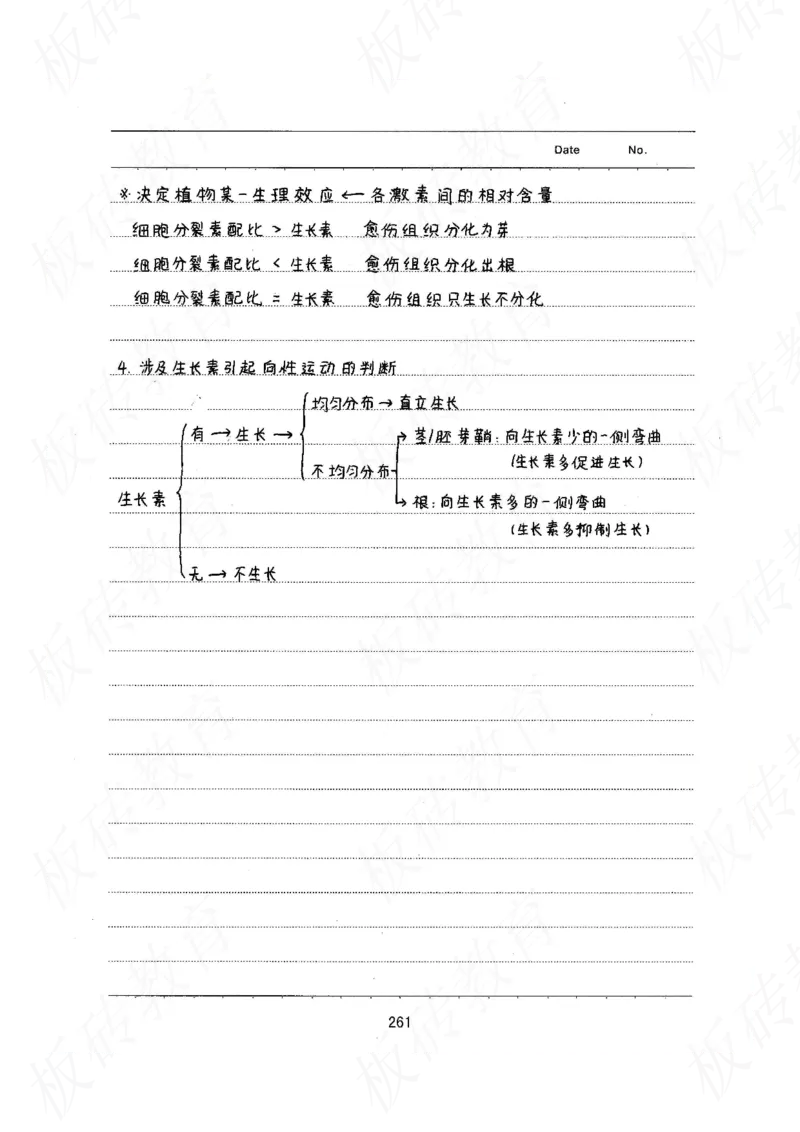 Date No.
※决定植物某一生理效应←各激素间的相对含量
细胞分裂素配比 > 生长素 愈伤组织分化为芽
细胞分裂素配比 < 生长素 愈伤组织分化出根
细胞分裂素配比 = 生长素 愈伤组织只生长不分化
4. 涉及生长素引起向性运动的判断
均匀分布→直立生长
有→生长→
茎/胚芽鞘:向生长素少的一侧弯曲
(生长素多促进生长)
不均匀分布
生长素
根:向生长素多的一侧弯曲
(生长素多抑制生长)
无→不生长
261
板砖教育